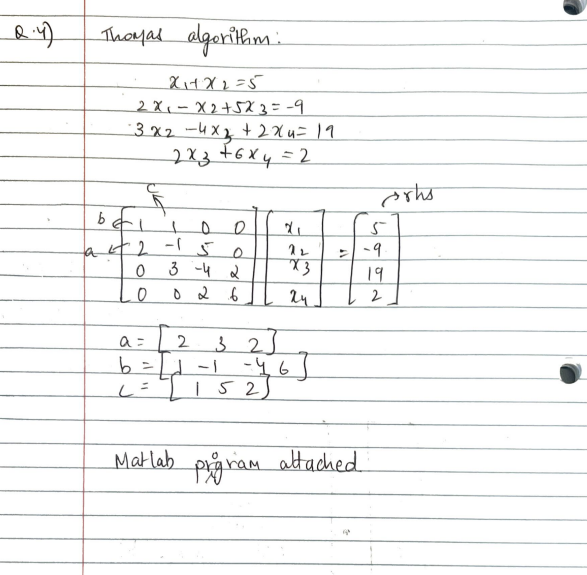 Q.4) Thomas algorithm:
x1+x2=5
2x1-x2+5x3=-9
3x2-4x3+2x4=19
2x3+6x4=2
c
rhs
b 1 1 0 0 x1 5
a 2 -1 5 0 x2 = -9
0 3 -4 2 x3 19
0 0 2 6 x4 2
a = [2 3 2]
b = [1 -1 -4 6]
c = [1 5 2]
Matlab program attached